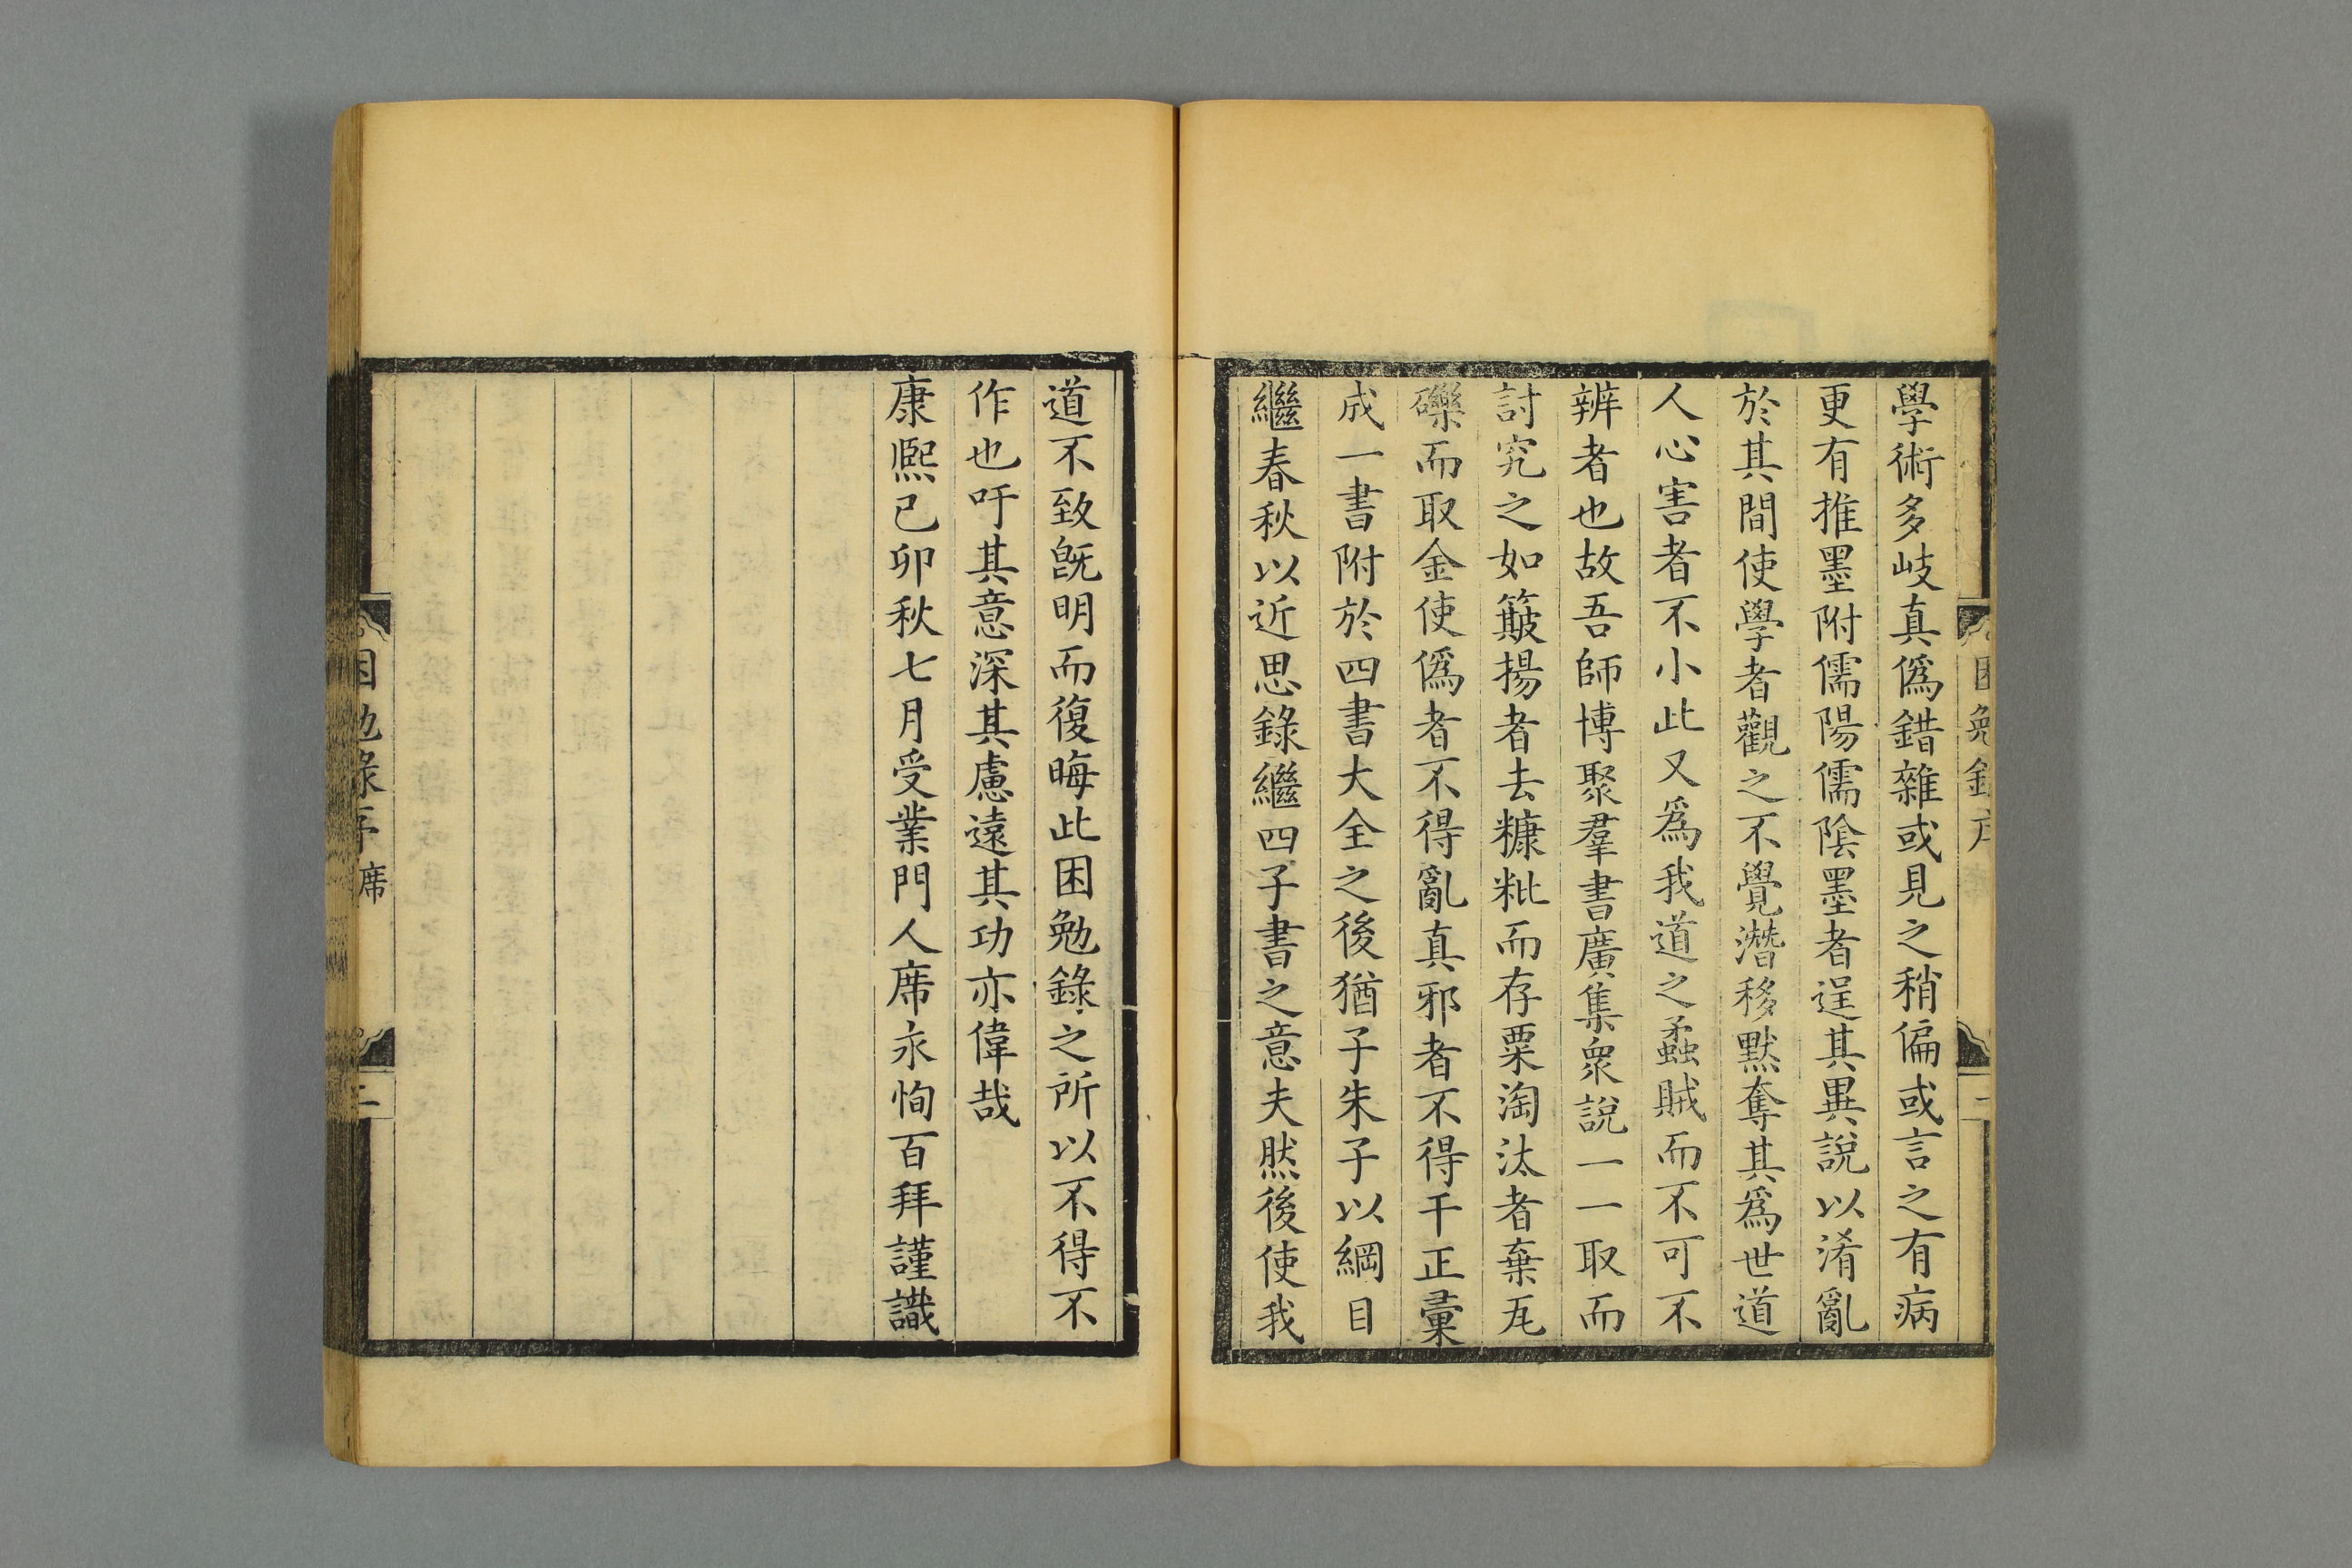 學術多岐真僞錯雜或見之稍偏或言之有病
更有推墨附儒陽儒陰墨者逞其異說以淆亂
於其間使學者觀之不覺潛移默奪其爲世道
人心害者不小此又爲我道之蟊賊而不可不
辨者也故吾師博聚羣書廣集衆說一一取而
討究之如簸揚者去糠粃而存粟淘汰者棄瓦
礫而取金使僞者不得亂真邪者不得干正彙
成一書附於四書大全之後猶子朱子以綱目
繼春秋以近思錄繼四子書之意夫然後使我
道不致旣明而復晦此困勉錄之所以不得不
作也吁其意深其慮遠其功亦偉哉
康熙己卯秋七月受業門人席永恂百拜謹識
困勉錄序
席
二